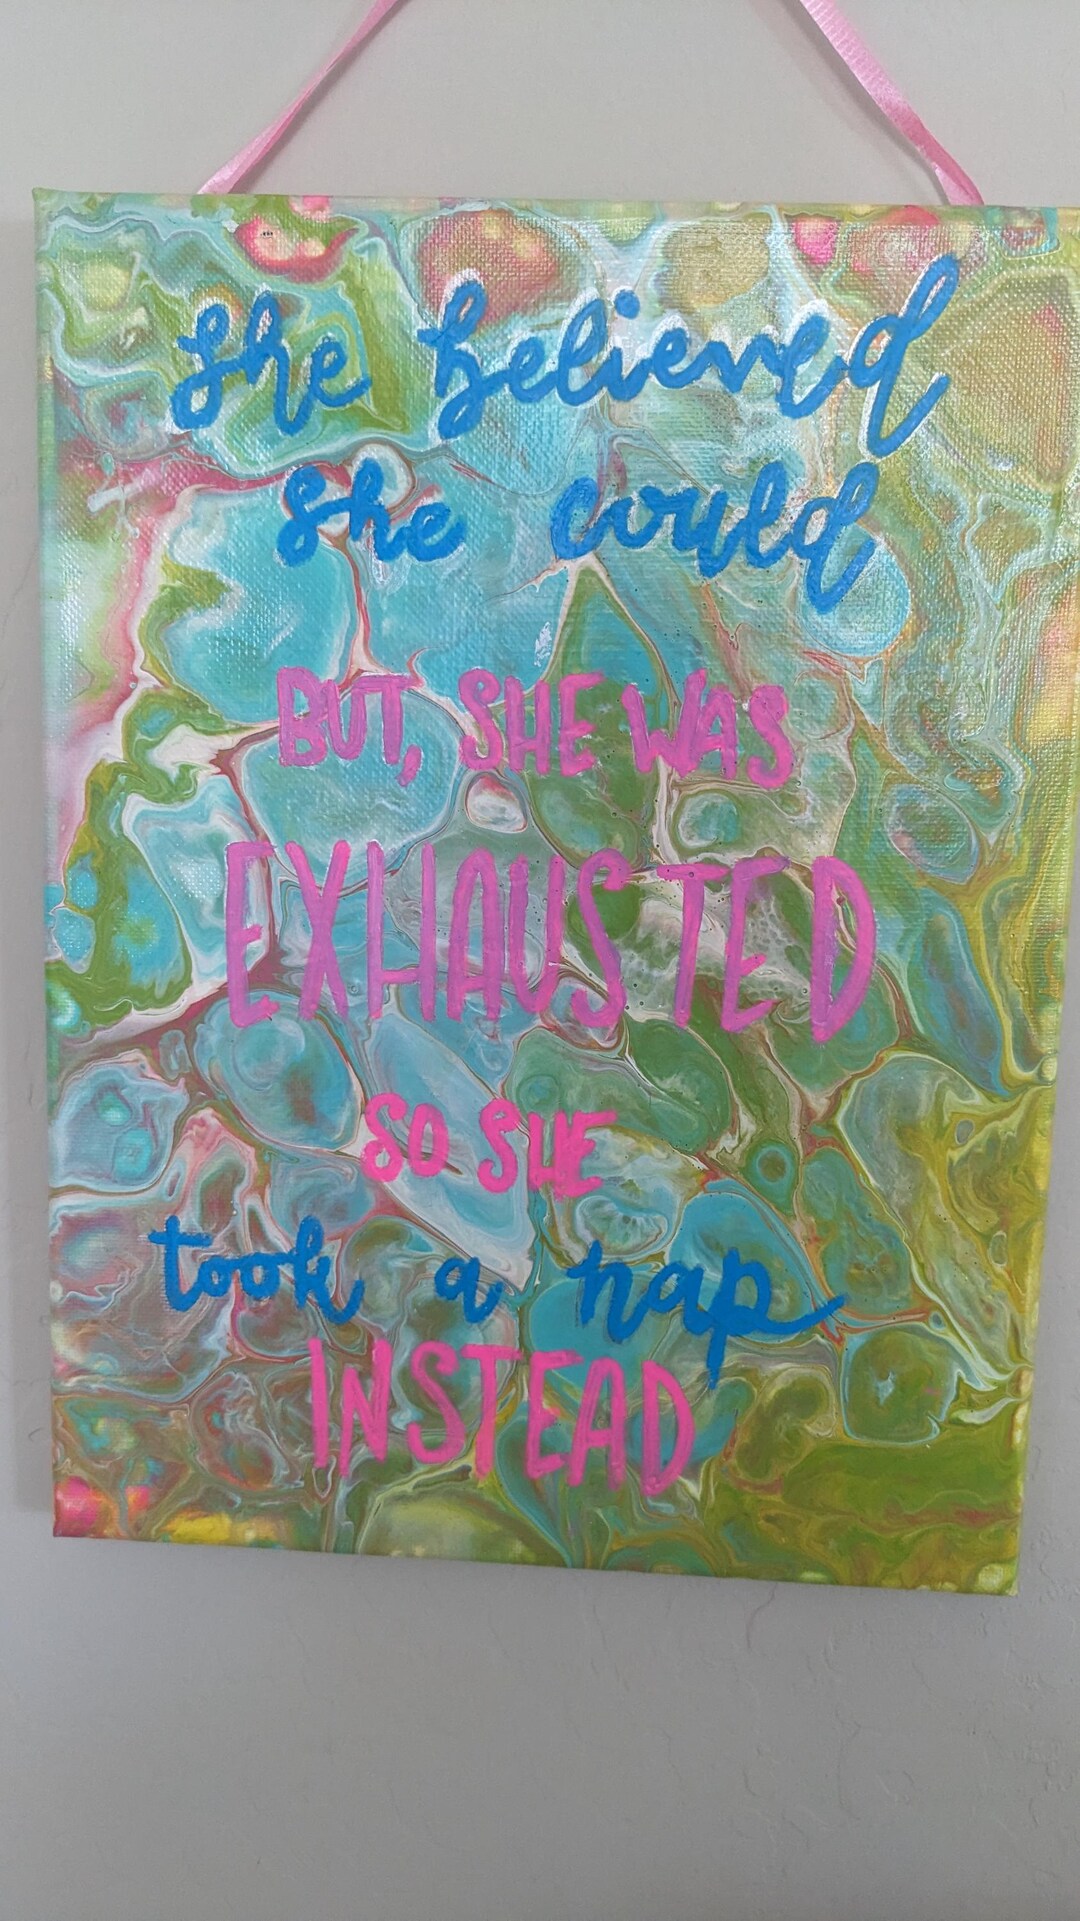 She believed
she could
BUT, SHE WAS
EXHAUSTED
SO SHE
took a nap
INSTEAD